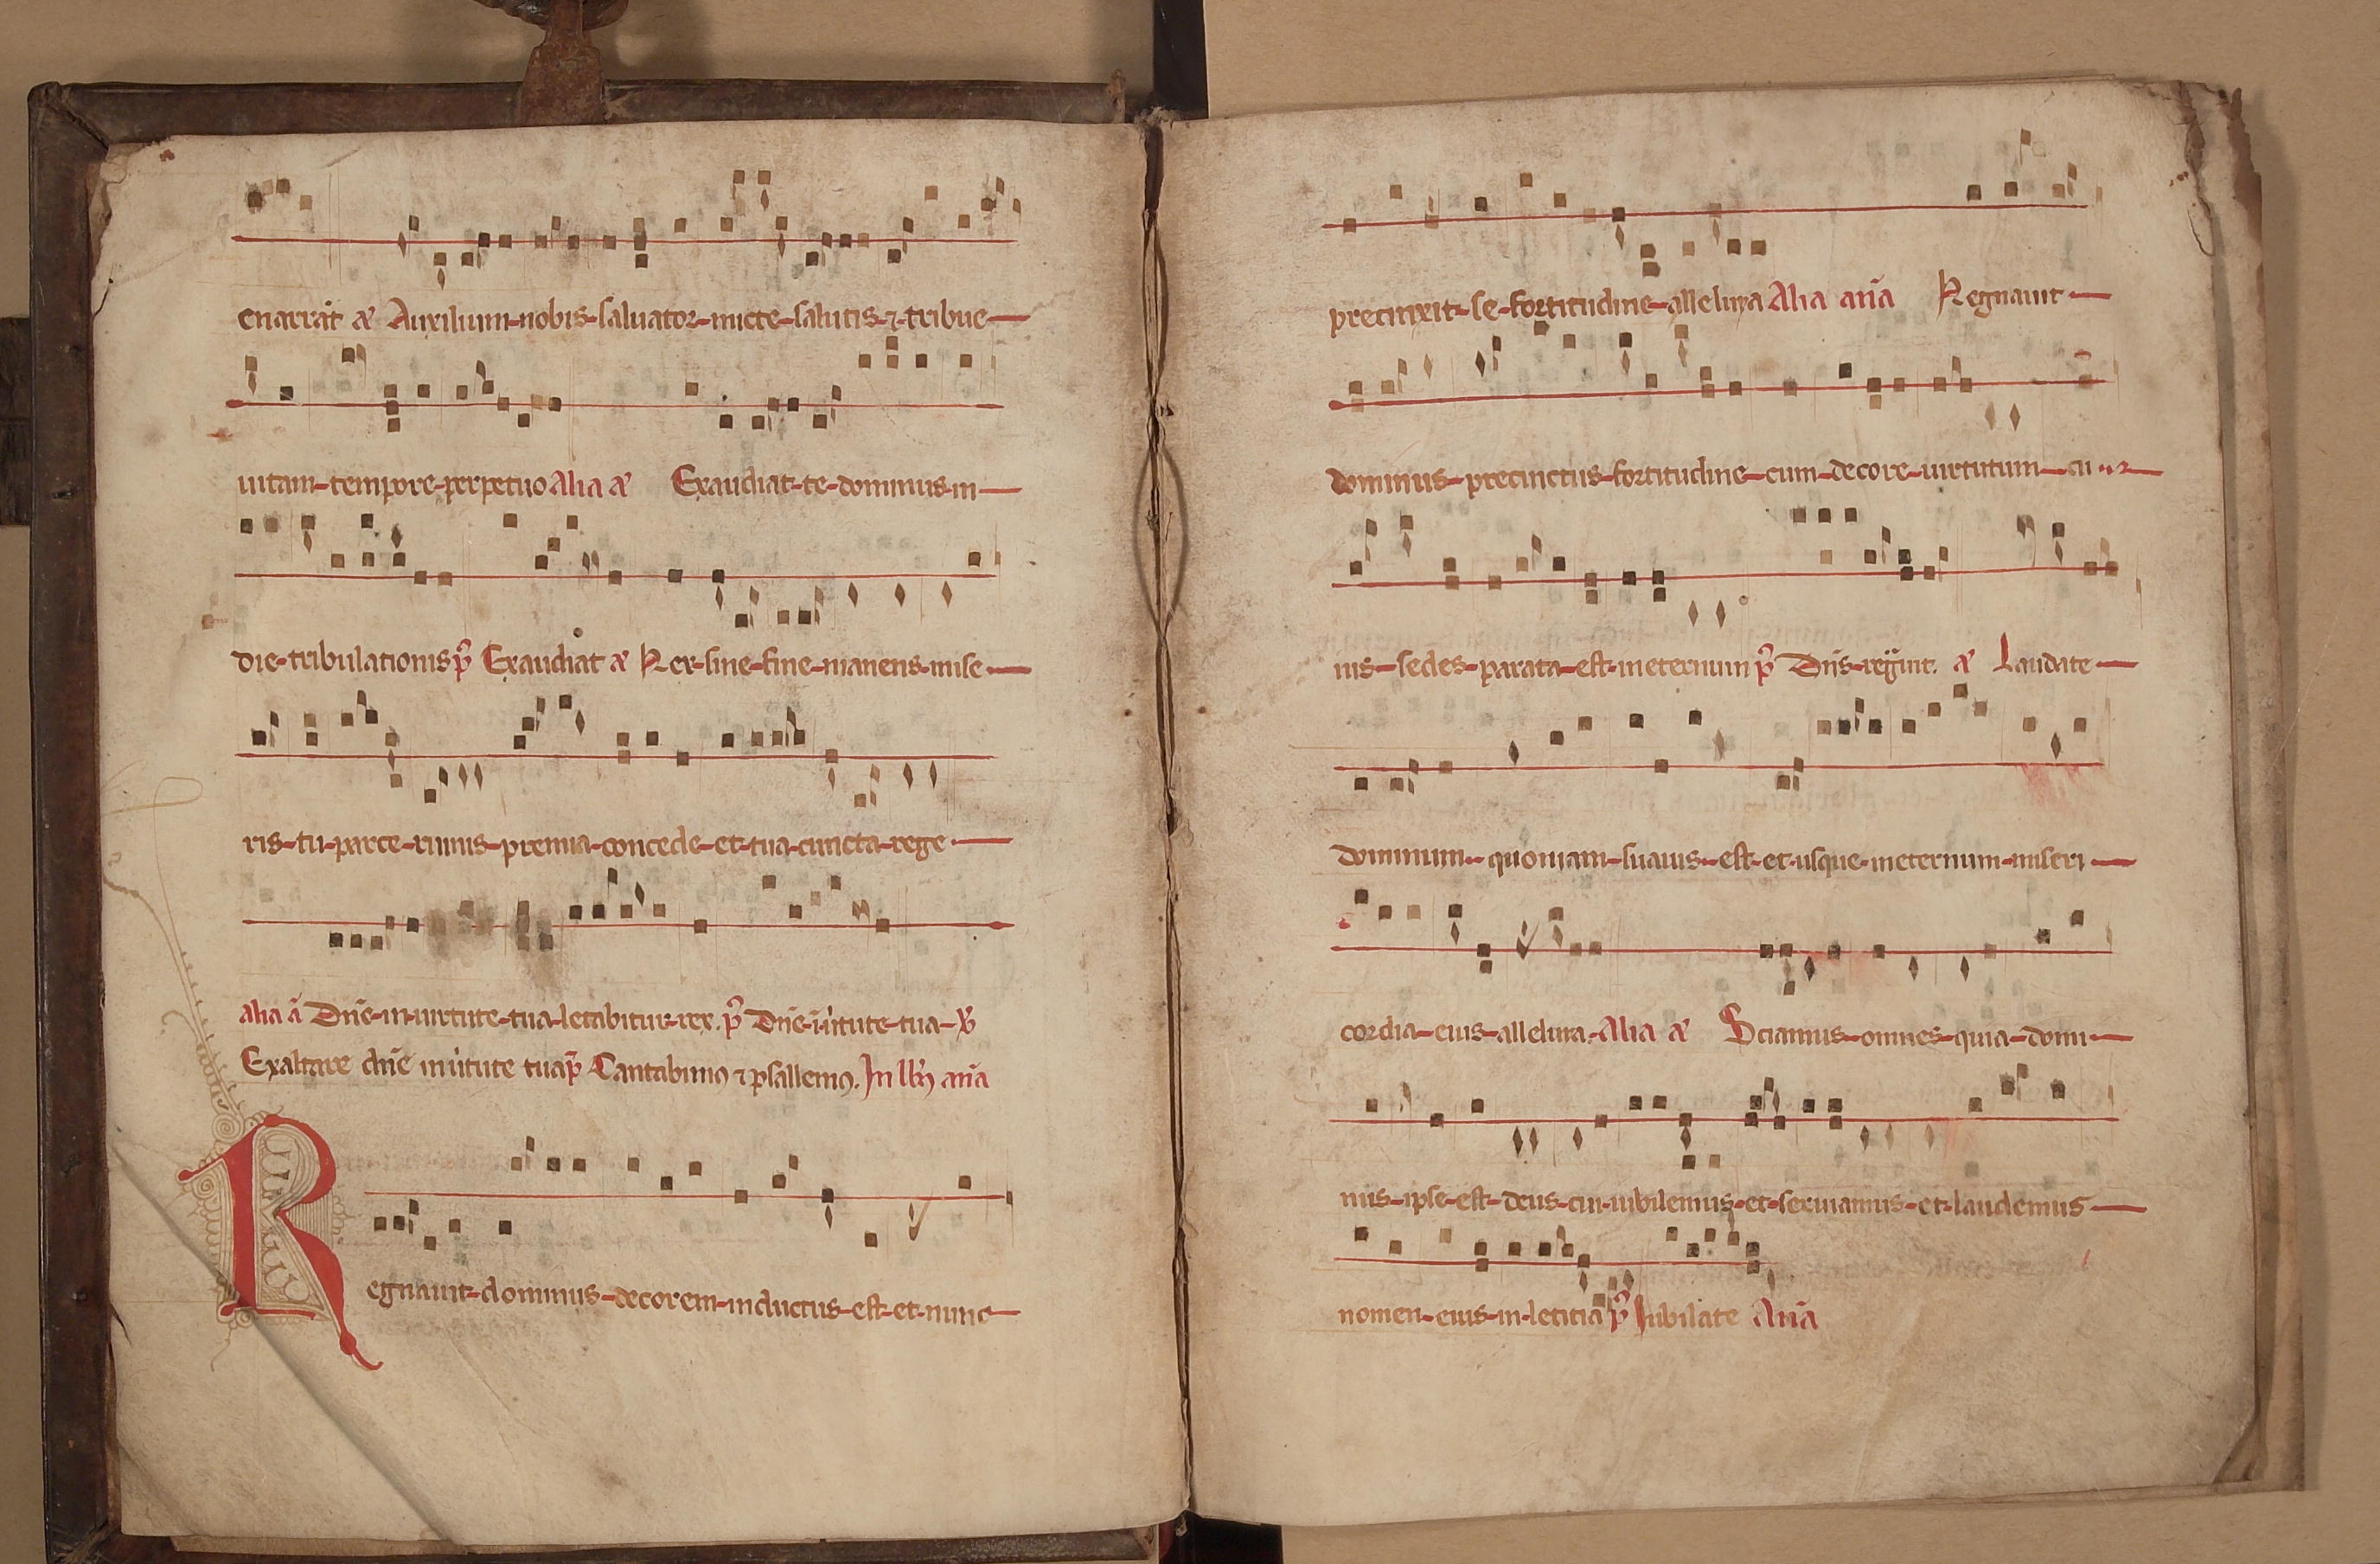 enarrāt a͞ Auxilium nobis saluator micte salutis ⁊ tribue
uitam tempore perpetuo Alia a͞ Exaudiat te dominus in
die tribulationis p̄s Exaudiat a͞ Rex sine fine manens mise
ris tu parce ruinis premia concede et tua cuncta rege
alia ā Dn̄e in uirtute tua letabitur rex. p̄s Dn̄e i uītute tua
Exaltare dn̄e in uītute tua p̄s Cantabimꝰ ⁊ psallemꝰ. In ān̄a
Regnauit dominus decorem inductus est et nunc
precinxit se fortitudine alleluya Alia an̄a Regnauit
dominus precinctus fortitudine cum decore uirtutum cu iꝰ
nis sedes parata est in eternum p̄s Dn̄s regnuit. a͞ Laudate
dominum quoniam suauis est et usque in eternum miseri
cordia eius alleluia Alia a͞ Sciamus omnes quia domi
nus ipse est deus cui iubilemus et seruiamus et laudemus
nomen eius in letitia p̄s Iubilate An̄a